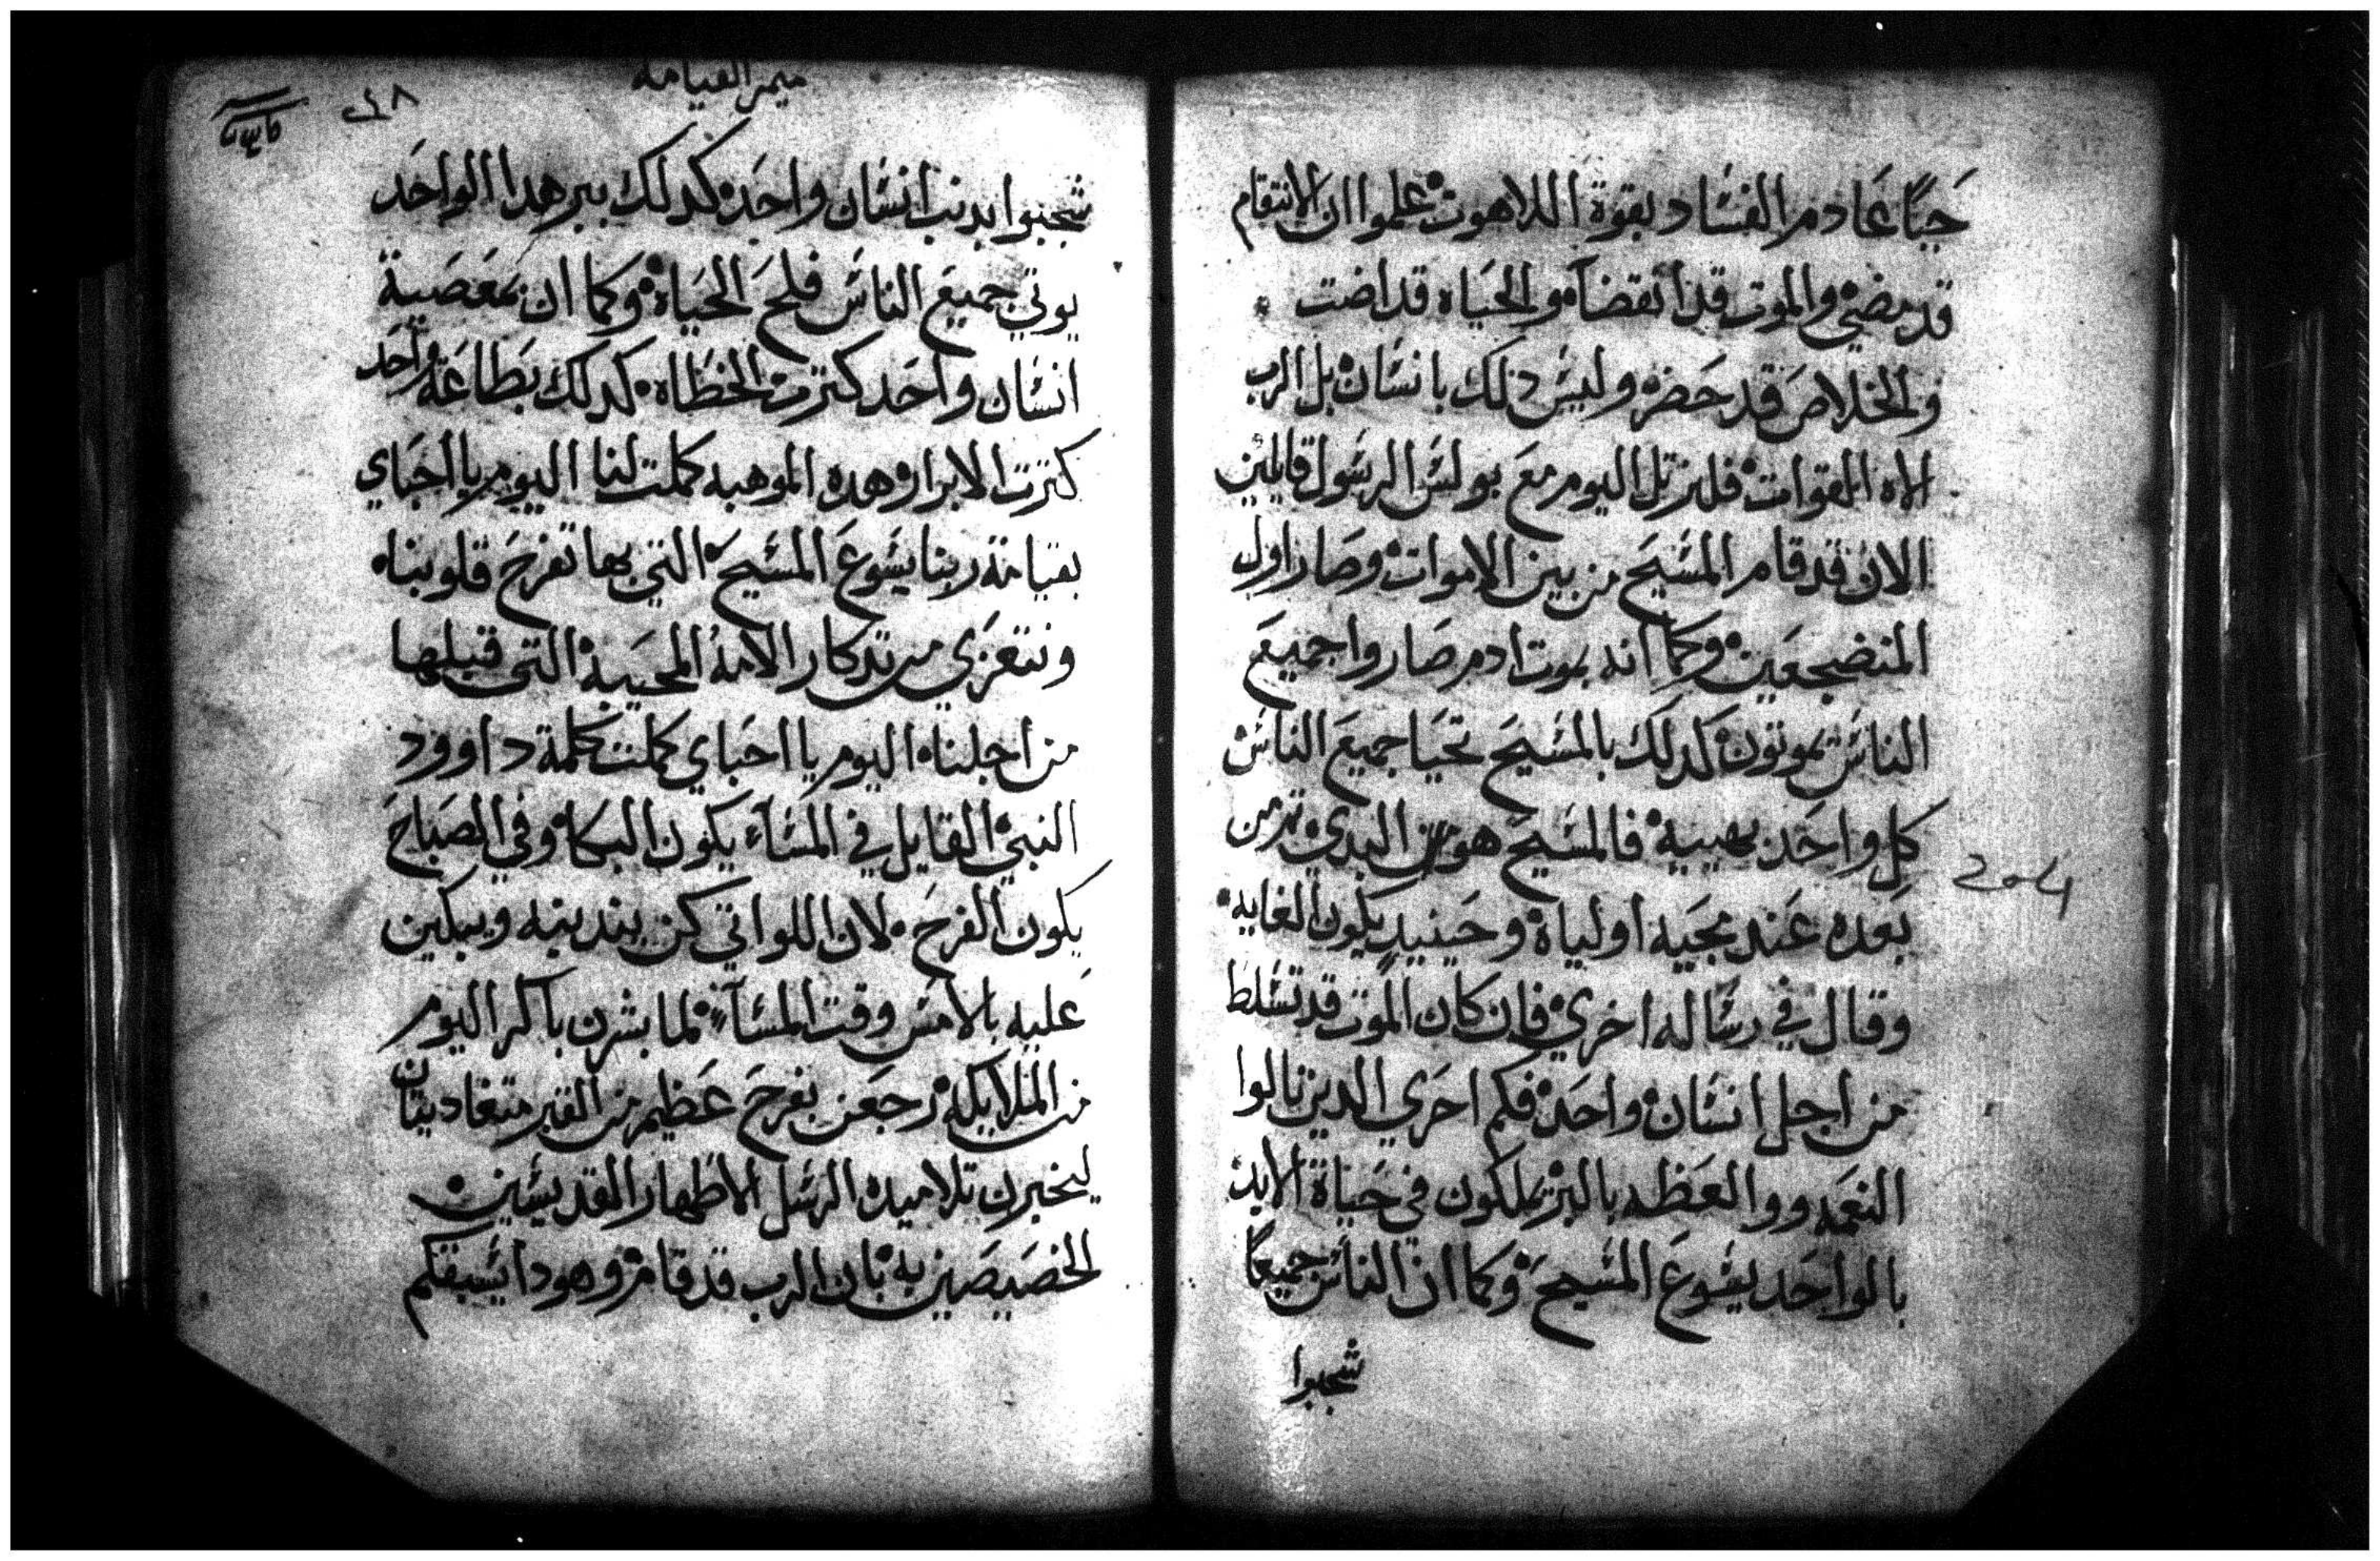 حيًا عادم الفساد بقوة اللاهوت علموا ان الانتقام
قد مضي والموت قد انقضاَ والحياه قد اضت
والخلاص قد حضر وليس ذلك بانسان بل الرب
الاه القوات فلنرتل اليوم مع بولس الرسول قايلين
الان قد قام المسيح من بين الاموات وصار اول
المنضجعين وكما انه بموت ادم صاروا جميع
الناس يموتون كدلك بالمسيح تحيا جميع الناس
كل واحد بهيبيه فالمسيح هو البدي ثم من
بعده عند مجيه اولياه وحينيد يكون الغايه
وقال في رساله اخري فان كان الموت قد تسلط
من اجل انسان واحد فكم احري الدين نالوا
النعمه ووالعظه بالبر يملكون في حياة الابد
بالواحد يشوع المسيح وكما ان الناس جميعًا
شجبوا
ميمر القيامة
شجبوا بدنب انسان واحد كدلك ببر هدا الواحد
يوتي جميع الناس فلح الحياه وكما ان بمعصية
انسان واحد كترت الخطاه كدلك بطاعة واحد
كترت الابرار وهده الموهبه كملت لنا اليوم يا احباي
بقيامة ربنا يشوع المسيح التي بها تفرح قلوبنا
ونتعزي من تدكار الامه المحييه التي قبلها
من اجلنا اليوم يا احباي كملت كلمة داوود
النبي القايل في المساَ يكون البكا وفي الصباح
يكون الفرح لان اللواتي كن يندبنه ويبكين
عليه بالامس وقت المساَ لما بشرن باكر اليوم
من الملايكه رجعن بفرح عظيم من القبر متغاديتان
ليخبرن تلاميده الرسل الاطهار القديسين
الخصيصين به بان الرب قد قام وهودا يسبقكم